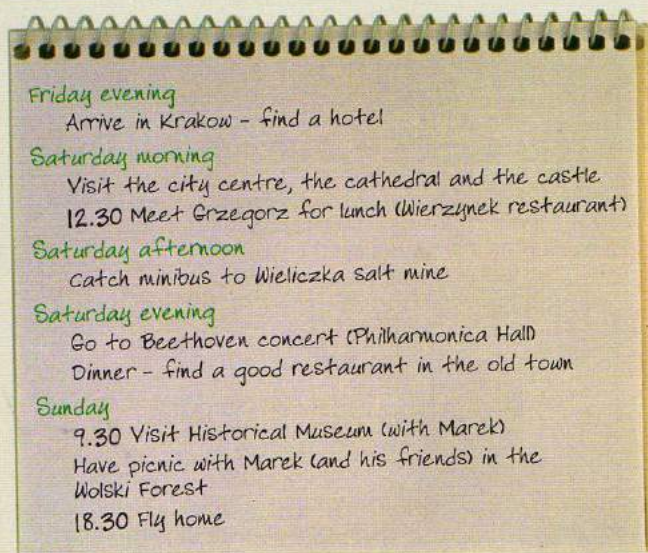 Friday evening
Arrive in Krakow - find a hotel
Saturday morning
Visit the city centre, the cathedral and the castle
12.30 Meet Grzegorz for lunch (Wierzynek restaurant)
Saturday afternoon
Catch minibus to Wieliczka salt mine
Saturday evening
Go to Beethoven concert (Philharmonica Hall)
Dinner - find a good restaurant in the old town
Sunday
9.30 Visit Historical Museum (with Marek)
Have picnic with Marek (and his friends) in the
Wolski Forest
18.30 Fly home